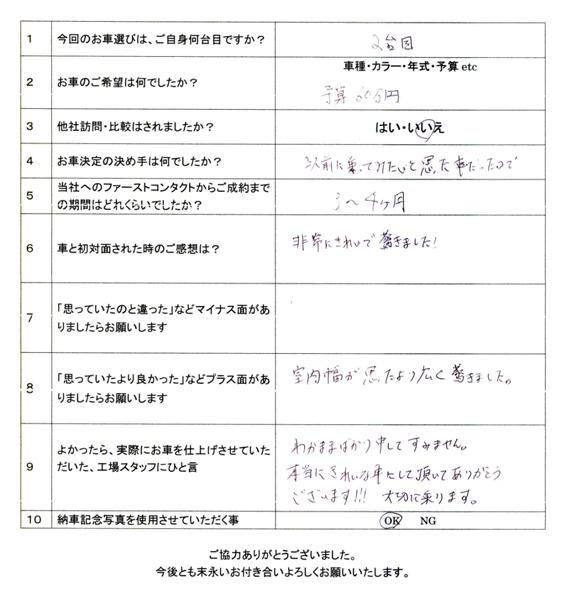 1 今回のお車選びは、ご自身何台目ですか？ 2台目
2 お車のご希望は何でしたか？ 車種・カラー・年式・予算 etc
予算 60万円
3 他社訪問・比較はされましたか？ はい・いいえ
4 お車決定の決め手は何でしたか？ 以前に乗ってみたいと思た車だったので
5 当社へのファーストコンタクトからご成約まで
の期間はどれくらいでしたか？ 3～4ヶ月
6 車と初対面された時のご感想は？ 非常にきれいで驚きました！
7 「思っていたのと違った」などマイナス面があ
りましたらお願いします
8 「思っていたより良かった」などプラス面があ
りましたらお願いします 室内幅が思たより広く驚きました。
9 よかったら、実際にお車を仕上げさせていた
だいた、工場スタッフにひと言
わがままばかり申してすみません。
本当にきれいな車にして頂いてありがとう
ございます!!! 大切に乗ります。
10 納車記念写真を使用させていただく事 OK NG
ご協力ありがとうございました。
今後とも末永いお付き合いよろしくお願いいたします。